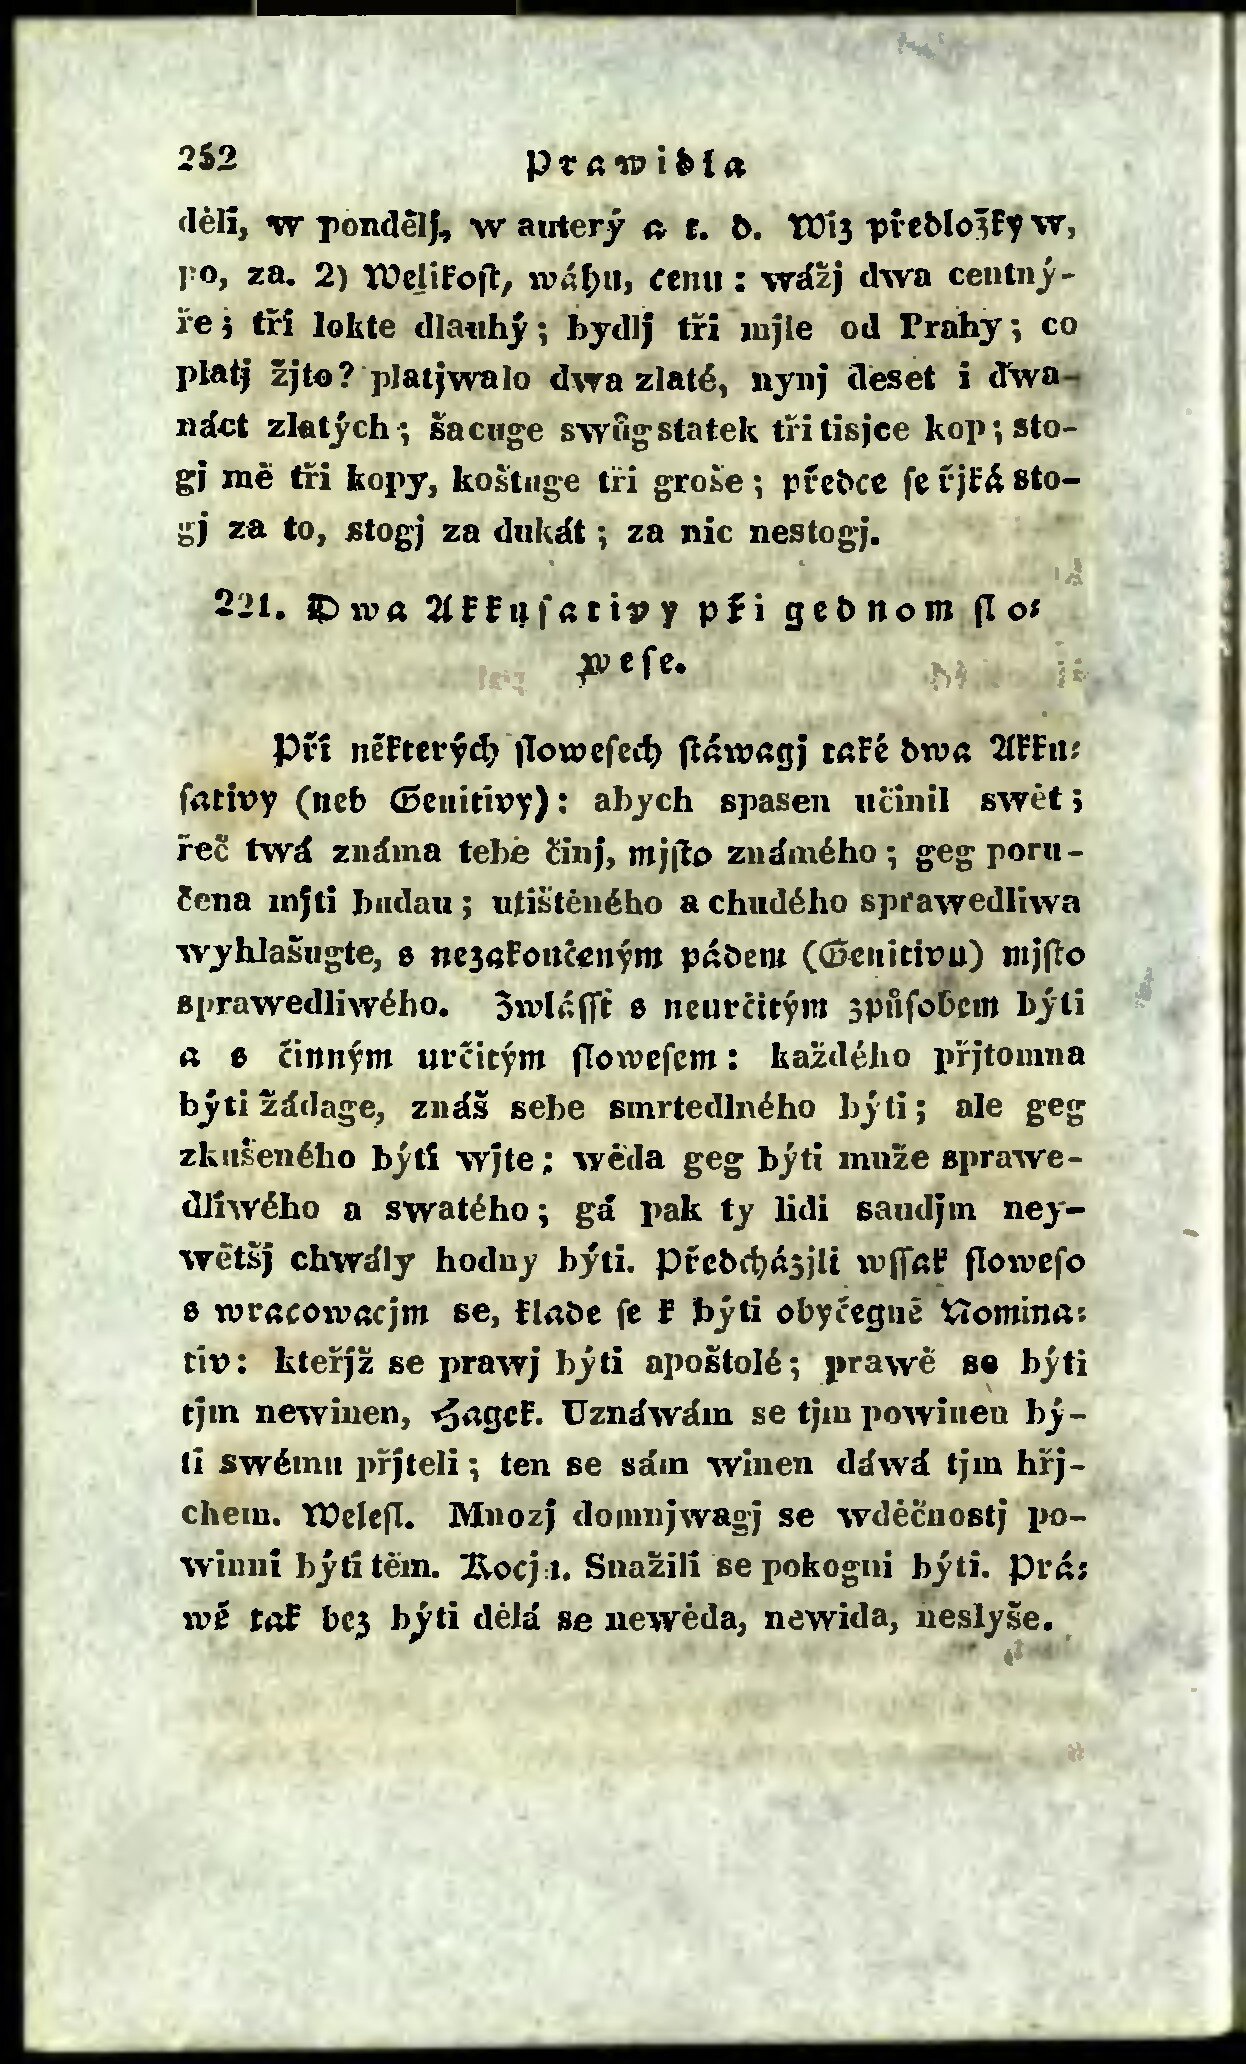 252 Prawidla
děli, w pondělj, w auterý a t. d. Wiz předložky w,
po, za. 2) Welikost, wáhu, cenu: wážj dwa centný-
ře; tři lokte dlauhý; bydlj tři mjle od Prahy; co
platj žjto? platjwalo dwa zlaté, nynj deset i dwa-
náct zlatých; šacuge swůg statek tři tisjce kop; sto-
gj mě tři kopy, koštuge tři groše; předce se řjká sto-
gj za to, stogj za dukát; za nic nestogj.
221. Dwa Akkusativy při gednom slo-
wese.
Při některých slowesech stáwagj také dwa Akku-
sativy (neb Genitivy): abych spasen učinil swět;
řeč twá známa tebe činj, mjsto známého; geg poru-
čena mjti budau; utištěného a chudého sprawedliwa
wyhlašugte, s nezakončeným pádem (Genitivu) mjsto
sprawedliwého. Zwlásst s neurčitým způsobem býti
a s činným určitým slowesem: každého přjtomna
býti žádage, znáš sebe smrtedlného býti; ale geg
zkušeného býti wjte; wěda geg býti muže sprawe-
dliwého a swatého; gá pak ty lidi saudjm ney-
wětšj chwály hodny býti. Předcházjli wssak sloweso
s wracowacjm se, klade se k býti obyčegně Nomina-
tiv: kteřjž se prawj býti apoštolé; prawě se býti
tjm newinen, Hagek. Uznáwám se tjm powinen bý-
ti swému přjteli; ten se sám winen dáwá tjm hřj-
chem. Welesl. Mnozj domnjwagj se wděčnostj po-
winni býti těm. Kocjn. Snažili se pokogni býti. Prá-
wě tak bez býti dělá se newěda, newida, neslyše.